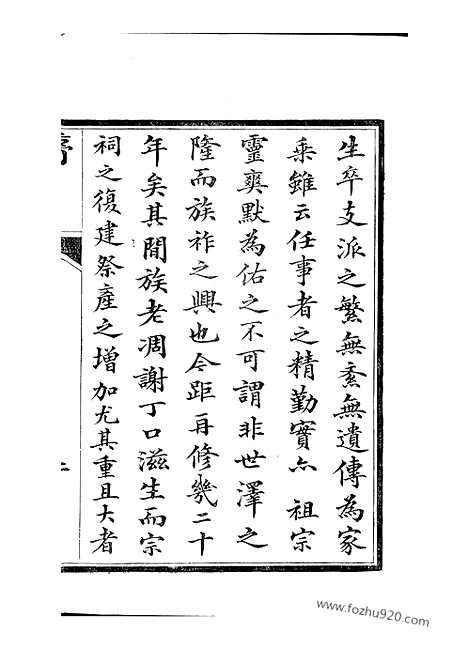 生卒支派之繁無紊無遺傳為家
乗雖云任事者之精勤實亦 祖宗
靈爽默為佑之不可謂非世澤之
隆而族祚之興也今距再修幾二十
年矣其間族老凋謝丁口滋生而宗
祠之復建祭產之增加尤其重且大者
www.fozhu920.com